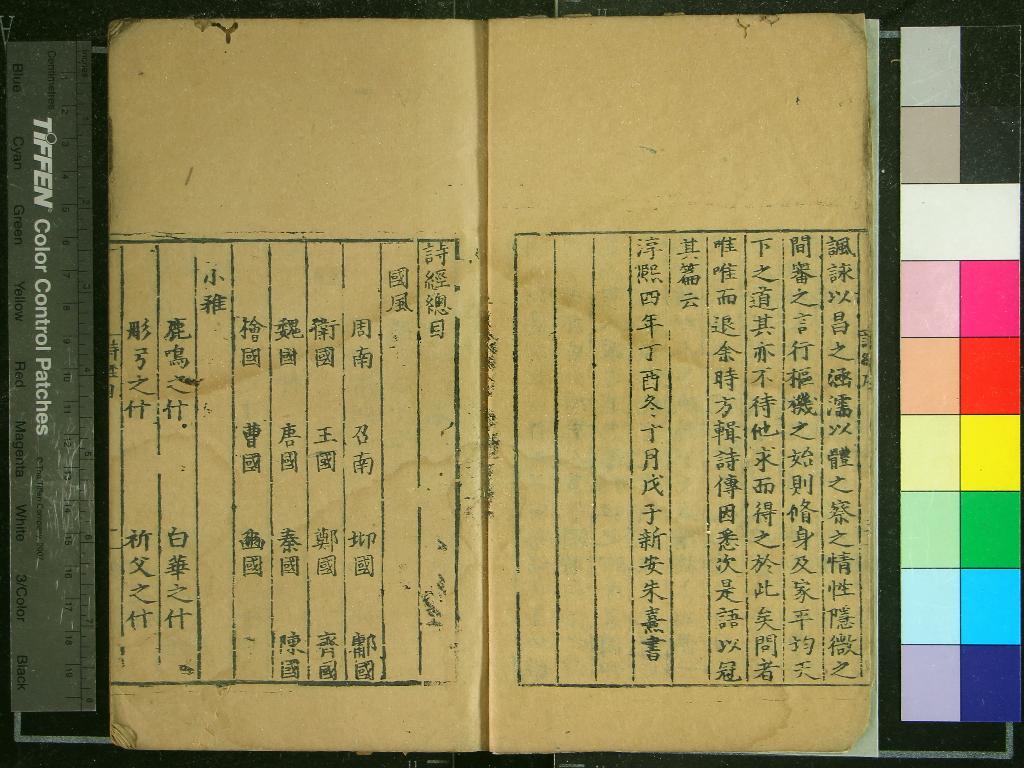 諷詠以昌之涵濡以體之察之情性隱微之
間審之言行樞機之始則脩身及家平均天
下之道其亦不待他求而得之於此矣問者
唯唯而退余時方輯詩傳因悉次是語以冠
其篇云
淳熙四年丁酉冬十月戊子新安朱熹書
詩經總目
國風
周南 召南 邶國 鄘國
衛國 王國 鄭國 齊國
魏國 唐國 秦國 陳國
檜國 曹國 豳國
小雅
鹿鳴之什 白華之什
彤弓之什 祈父之什
TIFFEN Color Control Patches
© The Tiffen Company, 2007
Centimetres
Inches
Blue Cyan Green Yellow Red Magenta White 3/Color Black